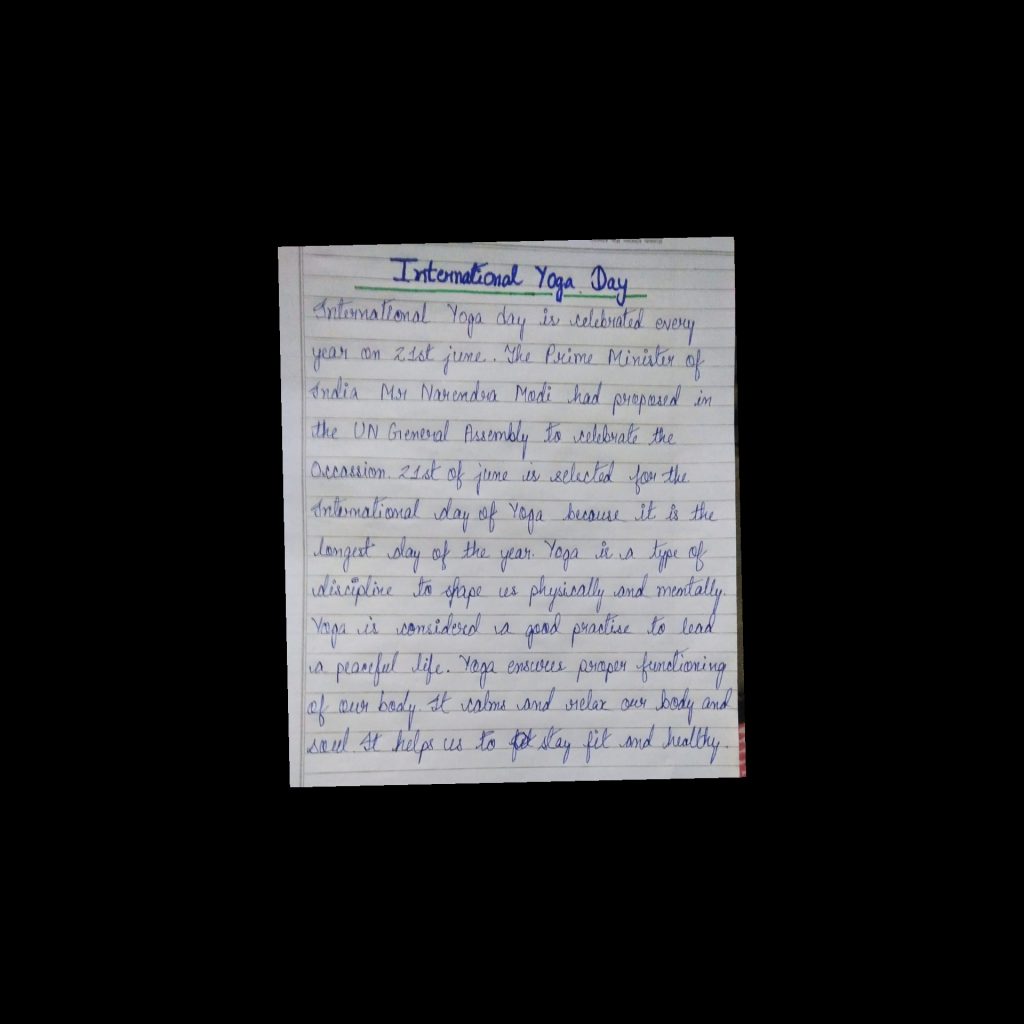 International Yoga Day
International Yoga day is celebrated every
year on 21st june. The Prime Minister of
India Mr Narendra Modi had proposed in
the UN General Assembly to celebrate the
Occassion. 21st of june is selected for the
International day of Yoga because it is the
longest day of the year. Yoga is a type of
discipline to shape us physically and mentally.
Yoga is considered a good practise to lead
a peaceful life. Yoga ensures proper functioning
of our body. It calms and relax our body and
soul. It helps us to stay fit and healthy.